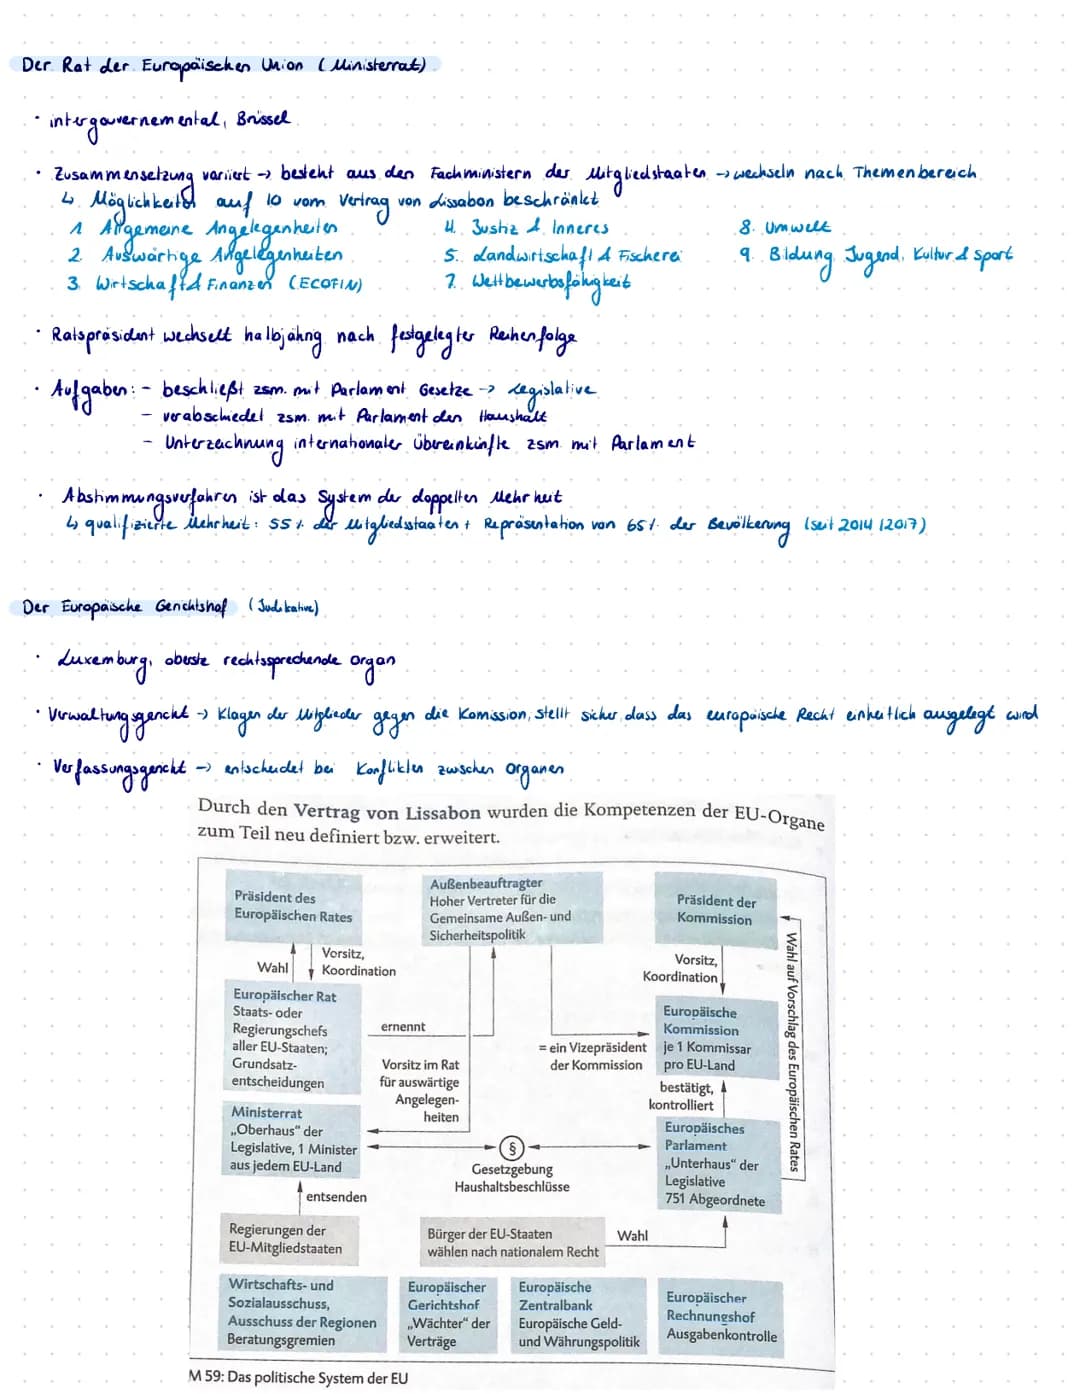 Der Rat der Europäischen Union (Ministerrat)
· intergouvernemental, Brüssel
· Zusammensetzung variiert → besteht aus den Fachministern der Mitgliedstaaten → wechseln nach Themenbereich
↳ Möglichkeiten auf 10 vom Vertrag von Lissabon beschränkt
1 Allgemeine Angelegenheiten 4. Justiz & Inneres 8. Umwelt
2. Auswärtige Angelegenheiten 5. Landwirtschaft & Fischerei 9. Bildung, Jugend, Kultur & Sport
3. Wirtschaft & Finanzen (ECOFIN) 7. Wettbewerbsfähigkeit
· Ratspräsident wechselt halbjährig nach festgelegter Reihenfolge
· Aufgaben: - beschließt zsm. mit Parlament Gesetze → Legislative
- verabschiedet zsm. mit Parlament den Haushalt
- Unterzeichnung internationaler Übereinkünfte zsm. mit Parlament
· Abstimmungsverfahren ist das System der doppelten Mehrheit
↳ qualifizierte Mehrheit: 55% der Mitgliedsstaaten + Repräsentation von 65% der Bevölkerung (seit 2014 / 2017)
Der Europäische Gerichtshof (Judikative)
· Luxemburg, oberste rechtssprechende Organ
· Verwaltungsgericht → Klagen der Mitglieder gegen die Komission, stellt sicher, dass das europäische Recht einheitlich ausgelegt wird
· Verfassungsgericht → entscheidet bei Konflikten zwischen Organen
Durch den Vertrag von Lissabon wurden die Kompetenzen der EU-Organe
zum Teil neu definiert bzw. erweitert.
Präsident des
Europäischen Rates
Außenbeauftragter
Hoher Vertreter für die
Gemeinsame Außen- und
Sicherheitspolitik
Präsident der
Kommission
Wahl
Vorsitz,
Koordination
Vorsitz,
Koordination
Wahl auf Vorschlag des Europäischen Rates
Europäischer Rat
Staats- oder
Regierungschefs
aller EU-Staaten;
Grundsatz-
entscheidungen
ernennt
Vorsitz im Rat
für auswärtige
Angelegen-
heiten
= ein Vizepräsident
der Kommission
Europäische
Kommission
je 1 Kommissar
pro EU-Land
bestätigt,
kontrolliert
Ministerrat
„Oberhaus" der
Legislative, 1 Minister
aus jedem EU-Land
§
Gesetzgebung
Haushaltsbeschlüsse
Europäisches
Parlament
„Unterhaus" der
Legislative
751 Abgeordnete
entsenden
Regierungen der
EU-Mitgliedstaaten
Bürger der EU-Staaten
wählen nach nationalem Recht
Wahl
Wirtschafts- und
Sozialausschuss,
Ausschuss der Regionen
Beratungsgremien
Europäischer
Gerichtshof
„Wächter" der
Verträge
Europäische
Zentralbank
Europäische Geld-
und Währungspolitik
Europäischer
Rechnungshof
Ausgabenkontrolle
M 59: Das politische System der EU